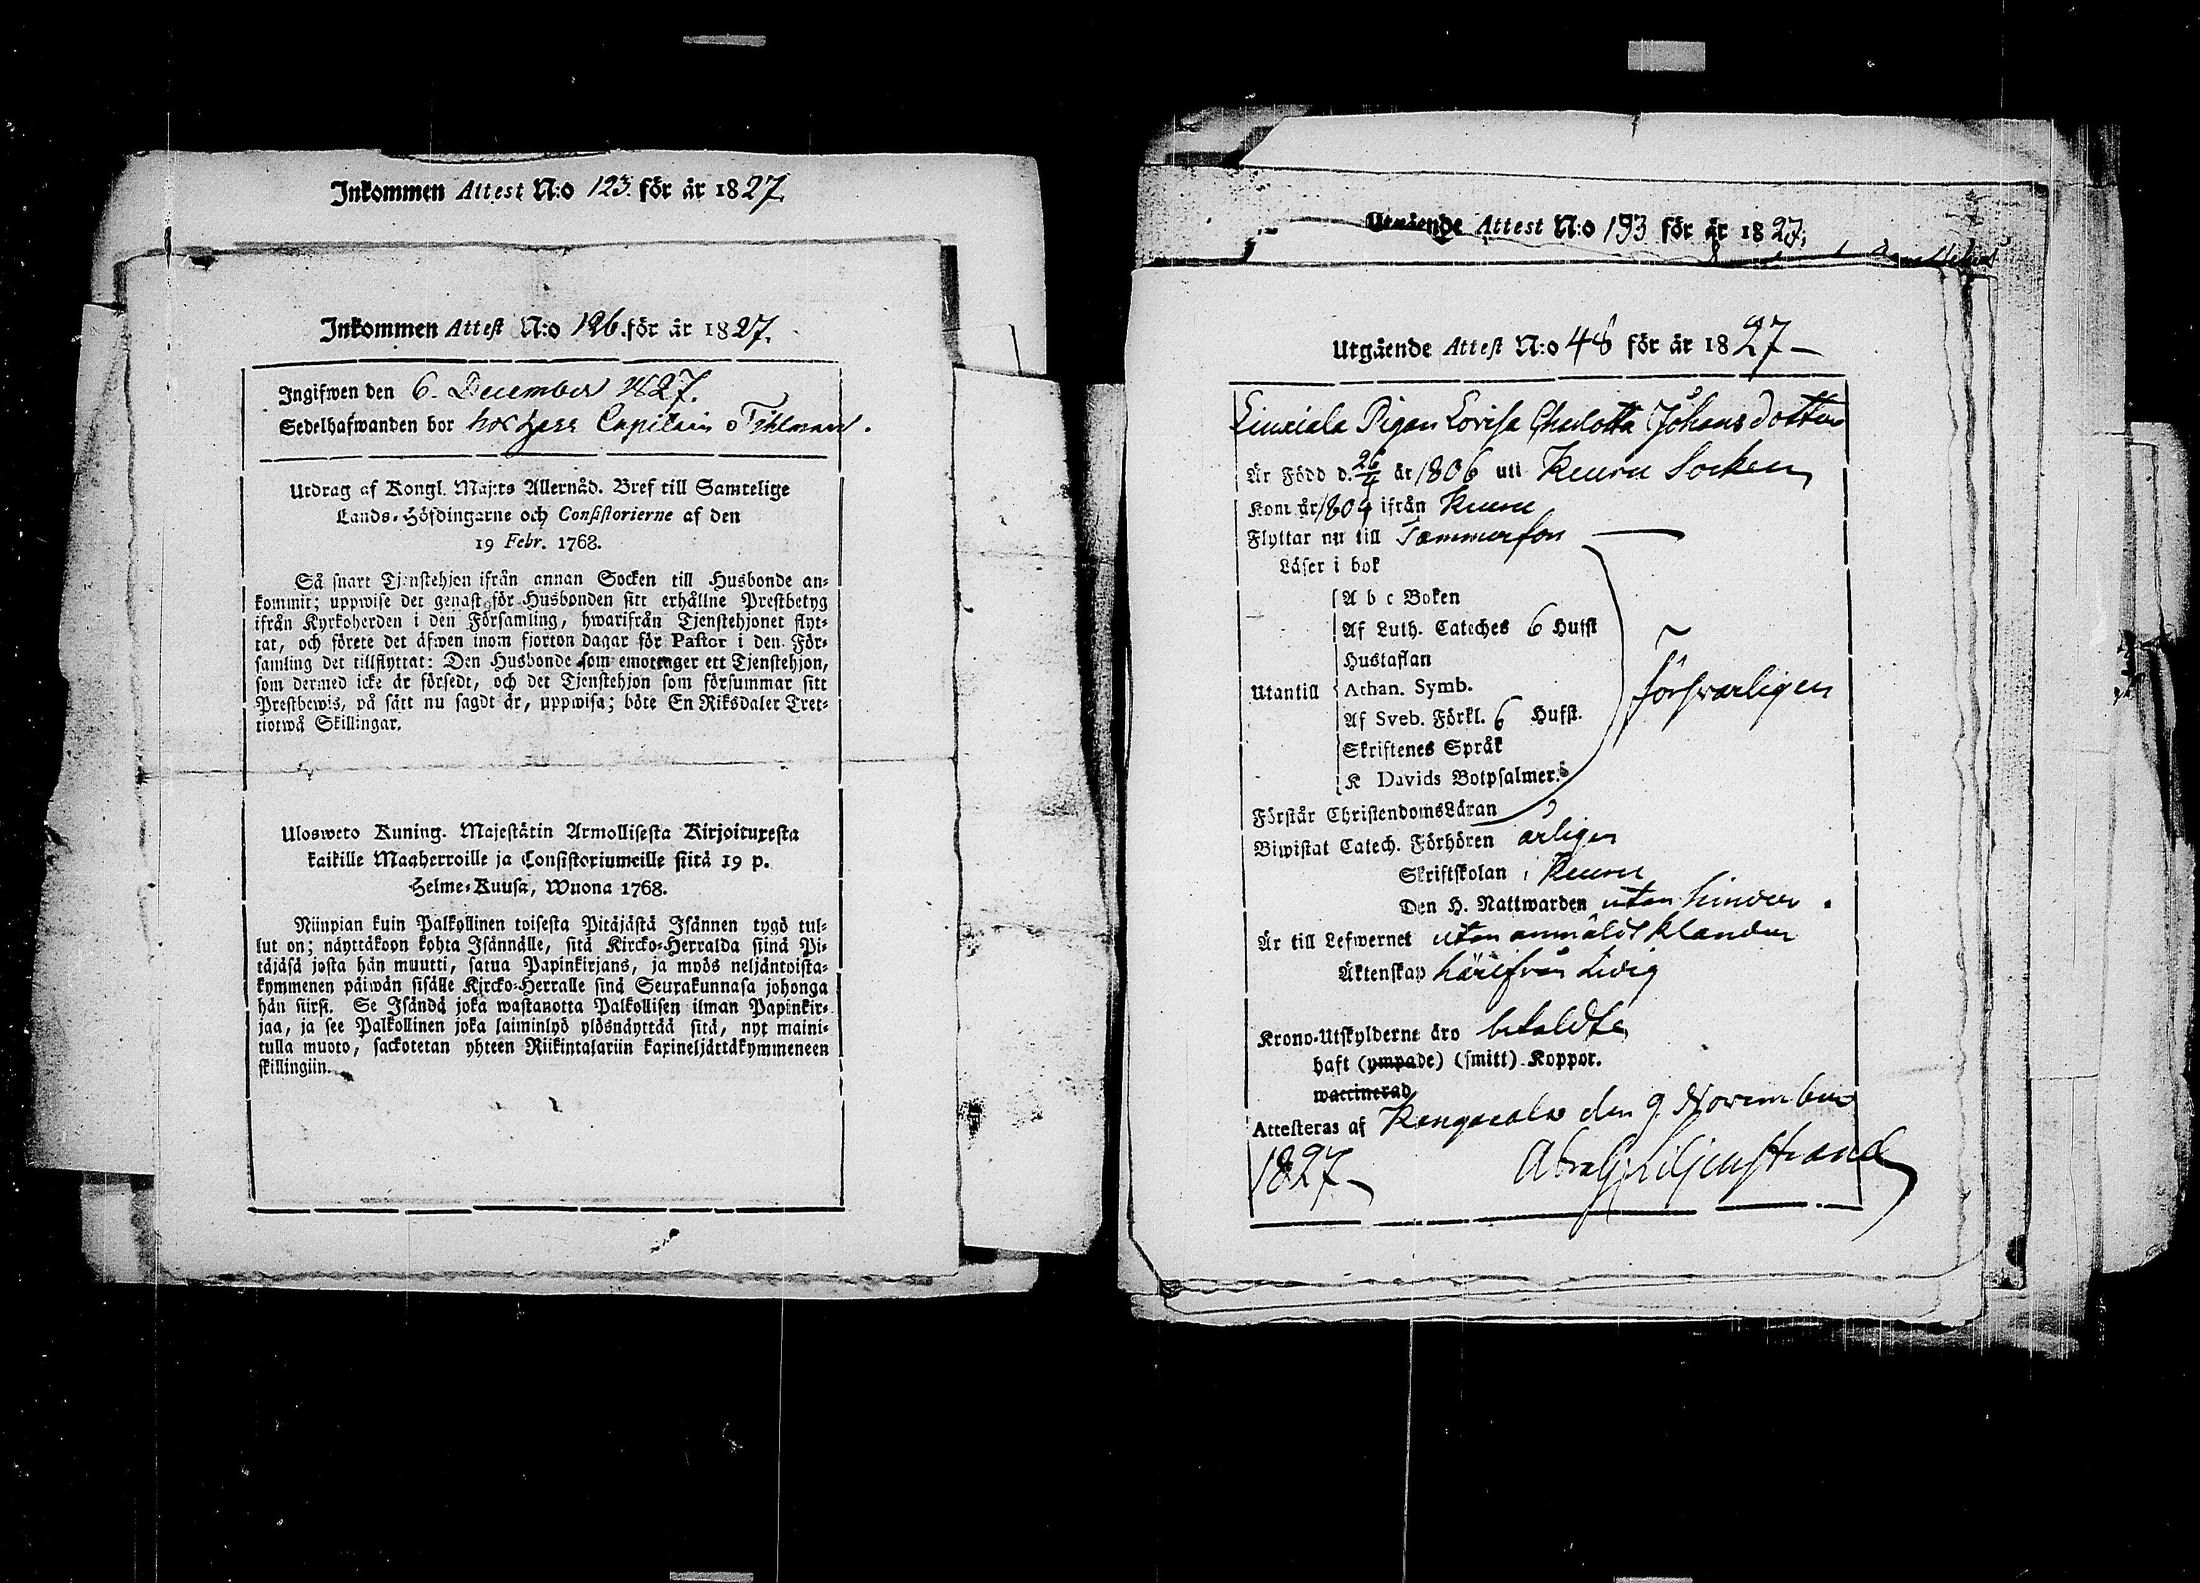 Inkommen Attest N:o 123. för år 1827.
Inkommen Attest N:o 126. för år 1827.
Ingifwen den 6. December 1827.
Sedelhafwanden bor hos Herr Capitain Tihleman.
Utdrag af Kongl. Maj:ts Allernåd. Bref till Samtelige
Lands-Höfdingarne och Consistorierne af den
19 Febr. 1768.
Så snart Tjenstehjon ifrån annan Socken till Husbonde an-
kommit; uppwise det genast för Husbonden sitt erhållne Prestbetyg
ifrån Kyrkoherden i den Församling, hwarifrån Tjenstehjonet flyt-
tat, och förete det äfwen inom fjorton dagar för Pastor i den För-
samling det tillflyttat: Den Husbonde som emottager ett Tjenstehjon,
som dermed icke är försedt, och det Tjenstehjon som försummar sitt
Prestbewis, på sätt nu sagdt är, uppwisa; böte En Riksdaler Tret-
tiotwå Skillingar.
Ulosweto Kuning. Majestätin Armollisesta Kirjoituxesta
kaikille Maaherroille ja Consistoriumeille siitä 19 p.
Helme-Kuusa, Wuona 1768.
Niinpian kuin Palkollinen toisesta Pitäjästä Isännen tygö tul-
lut on; näyttäköön kohta Isännälle, sitä Kircko-Herralda siinä Pi-
täjäsä josta hän muutti, satua Papinkirjans, ja myös neljäntoista-
kymmenen päiwän sisälle Kircko-Herralle sinä Seurakunnasa johonga
hän siirsi. Se Isändä joka wastanotta Palkollisen ilman Papinkir-
jaa, ja see Palkollinen joka laiminlyö ylösnäyttää sitä, nyt maini-
tulla muoto, sackotetan yhteen Riikintalariin kaxineljättäkymmeneen
skillingiin.
Utgående Attest N:o 193 för år 1827,
Utgående Attest N:o 48 för år 1827
Liuxiala Pigan Lovisa Charlotta Johansdotter
Är Född d. 26/4 år 1806 uti Keuru Socken
Kom år 1809 ifrån Keuru
Flyttar nu till Tammerfors
Läser i bok
A b c Boken
Af Luth. Cateches 6 Hufst
Hustaflan
Utantill Athan. Symb.
Af Sveb. Förkl. 6 Hufst.
Skriftenes Språk
K Davids Botpsalmer.
försvarligen
Förstår ChristendomsLäran
Biwistat Catech. Förhören årligen
Skriftskolan i Keuru
Den H. Nattwarden utan hinder.
Är till Lefwernet utan anmäldt klander
Äktenskap härifrån ledig
Krono-Utskylderne äro betaldte
haft (ympade) (smitt) Koppor.
waccinerad
Attesteras af Kangasala den 9 November
1827. Abrah Liljenstrand